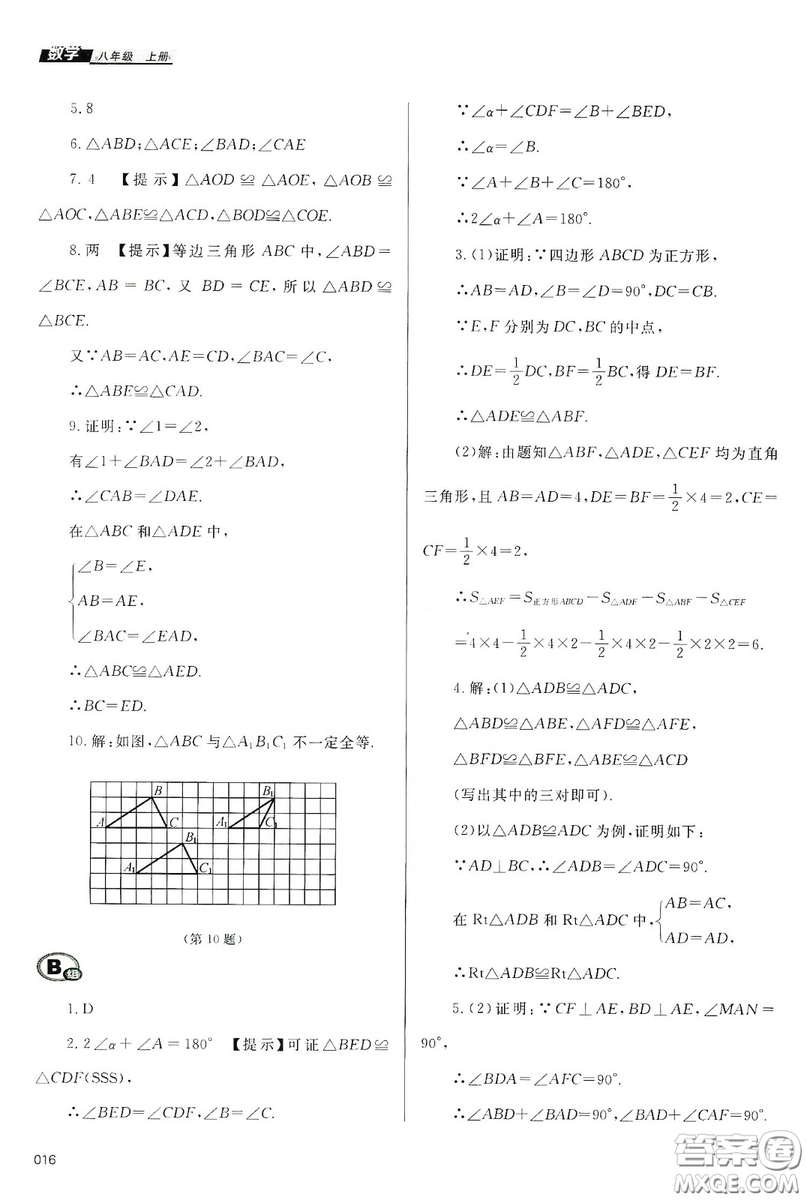 数学 八年级 上册
5.8
6.△ABD;△ACE;∠BAD;∠CAE
7.4 【提示】△AOD≌△AOE,△AOB≌
△AOC,△ABE≌△ACD,△BOD≌△COE.
8.两 【提示】等边三角形 ABC 中,∠ABD=
∠BCE,AB = BC,又 BD = CE,所以△ABD≌
△BCE.
又∵AB=AC,AE=CD,∠BAC=∠C,
∴△ABE≌△CAD.
9.证明:∵∠1=∠2,
有∠1+∠BAD=∠2+∠BAD,
∴∠CAB=∠DAE.
在△ABC 和△ADE 中,
∠B=∠E,
AB=AE,
∠BAC=∠EAD,
∴△ABC≌△AED.
∴BC=ED.
10.解:如图,△ABC 与△A₁B₁C₁ 不一定全等.
B B₁
A C A₁ C₁
B₁
A₁ C₁
(第 10 题)
B组
1.D
2.2∠α+∠A=180° 【提示】可证△BED≌
△CDF(SSS),
∴∠BED=∠CDF,∠B=∠C.
∵∠α+∠CDF=∠B+∠BED,
∴∠α=∠B.
∵∠A+∠B+∠C=180°,
∴2∠α+∠A=180°.
3.(1)证明:∵四边形 ABCD 为正方形,
∴AB=AD,∠B=∠D=90°,DC=CB.
∵E,F 分别为 DC,BC 的中点,
∴DE=1/2DC,BF=1/2BC,得 DE=BF.
∴△ADE≌△ABF.
(2)解:由题知△ABF,△ADE,△CEF 均为直角
三角形,且 AB=AD=4,DE=BF=1/2×4=2,CE=
CF=1/2×4=2,
∴S△AEF=S正方形ABCD-S△ADE-S△ABF-S△CEF
=4×4-1/2×4×2-1/2×4×2-1/2×2×2=6.
4.解:(1)△ADB≌△ADC,
△ABD≌△ABE,△AFD≌△AFE,
△BFD≌△BFE,△ABE≌△ACD
(写出其中的三对即可).
(2)以△ADB≌△ADC 为例,证明如下:
∵AD⊥BC,∴∠ADB=∠ADC=90°.
在 Rt△ADB 和 Rt△ADC 中,{AB=AC,
AD=AD,
∴Rt△ADB≌Rt△ADC.
5.(2)证明:∵CF⊥AE,BD⊥AE,∠MAN=
90°,
∴∠BDA=∠AFC=90°.
∴∠ABD+∠BAD=90°,∠BAD+∠CAF=90°.
016
答案圈
MXQE.COM